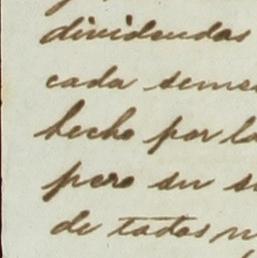 dividendas
cada semes
hecho por la
pero su s
de todos n